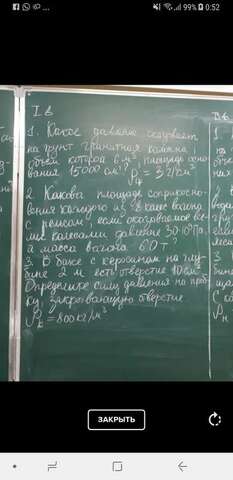 92% 0:52
I в
1. Какое давление оказывает
на грунт гранитная колонна,
объем которой 6 м³, площадь осно-
вания 15000 см²?
2. Какова площадь соприкос-
новения каждого из 8 колес вагона
с рельсом, если оказываемое
колесами давление
а масса вагона 60 т?
3. В баке с керосином на глу-
бине 2 м есть отверстие 10 см²
Определите силу давления на проб-
ку, закрывающую отверстие.
= 800 кг/м³
ЗАКРЫТЬ